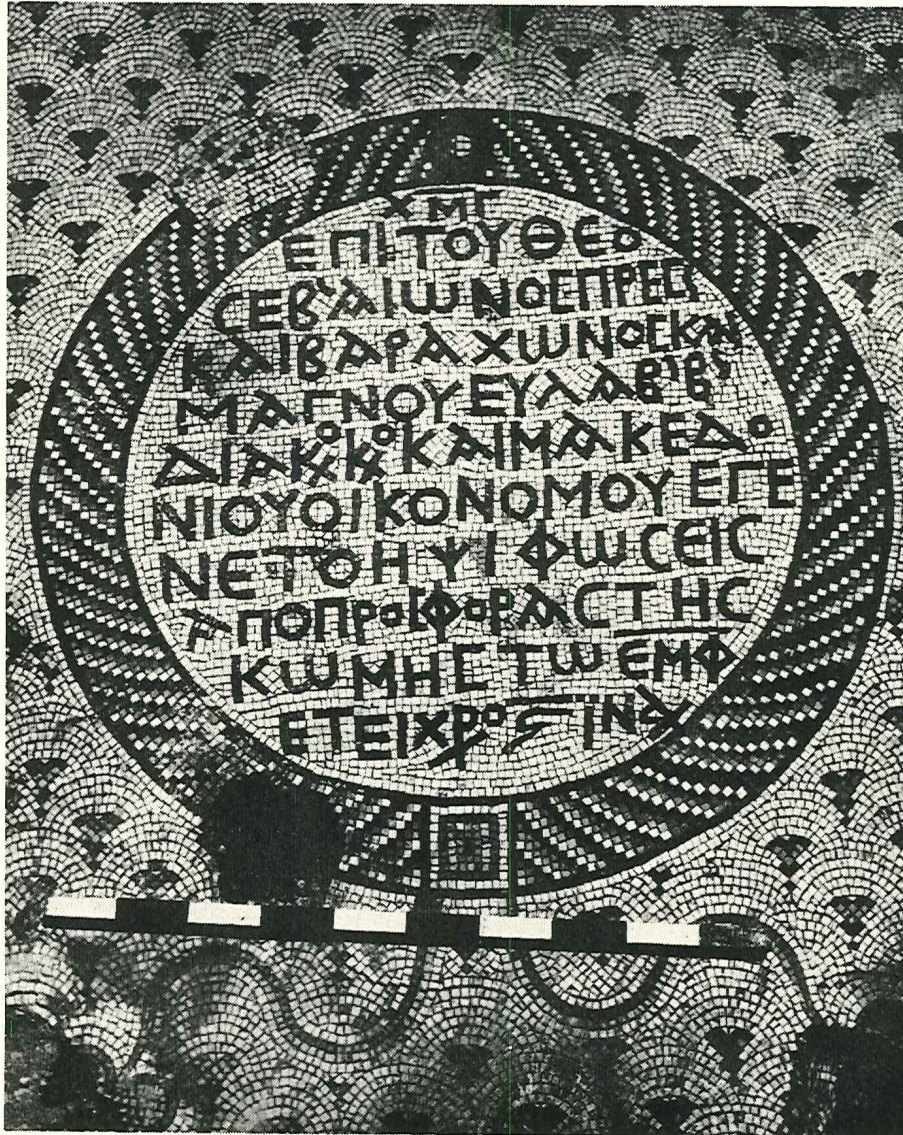 ΧΜΓ
ΕΠΙΤΟΥΘΕΟ
CΕΒΑΙΩΝΟCΠΡΕCΒ
ΚΑΙΒΑΡΑΧΩΝΟCΚΑΙ
ΜΑΓΝΟΥΕΥΛΑΒΒ
ΔΙΑΚΚ ΚΑΙΜΑΚΕΔΟ
ΝΙΟΥΟΙΚΟΝΟΜΟΥΕΓΕ
ΝΕΤΟΗΨΙΦΩCΕΙC
ΑΠΟΠΡΟCΦΟΡΑCΤΗC
ΚΩΜΗCΤΩΕΜΦ
ΕΤΕΙΧΡΟ ΙΝΔ